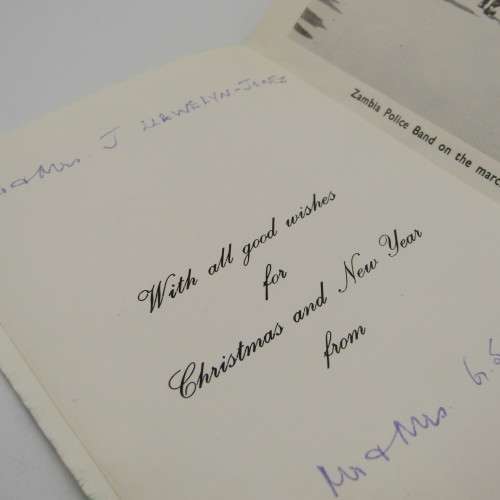 & Mrs. J LLEWELYN-JONES
Zambia Police Band on the marc
With all good wishes
for
Christmas and New Year
from
Mr & Mrs. G.